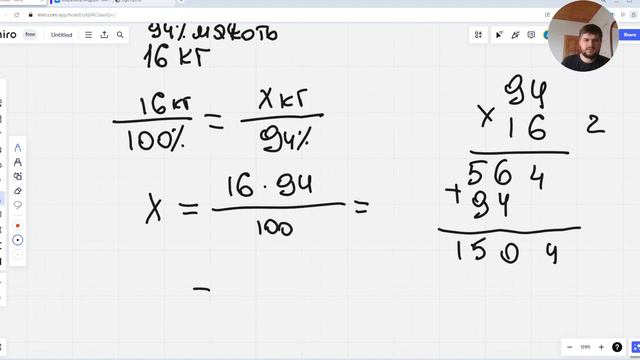 miro.com/app/board/
miro free Untitled Share
94% мякоть
16 кг
16кг / 100% = Xкг / 94%
X = 16 · 94 / 100 =
=
94
× 16 2
564
+ 94
1504
?